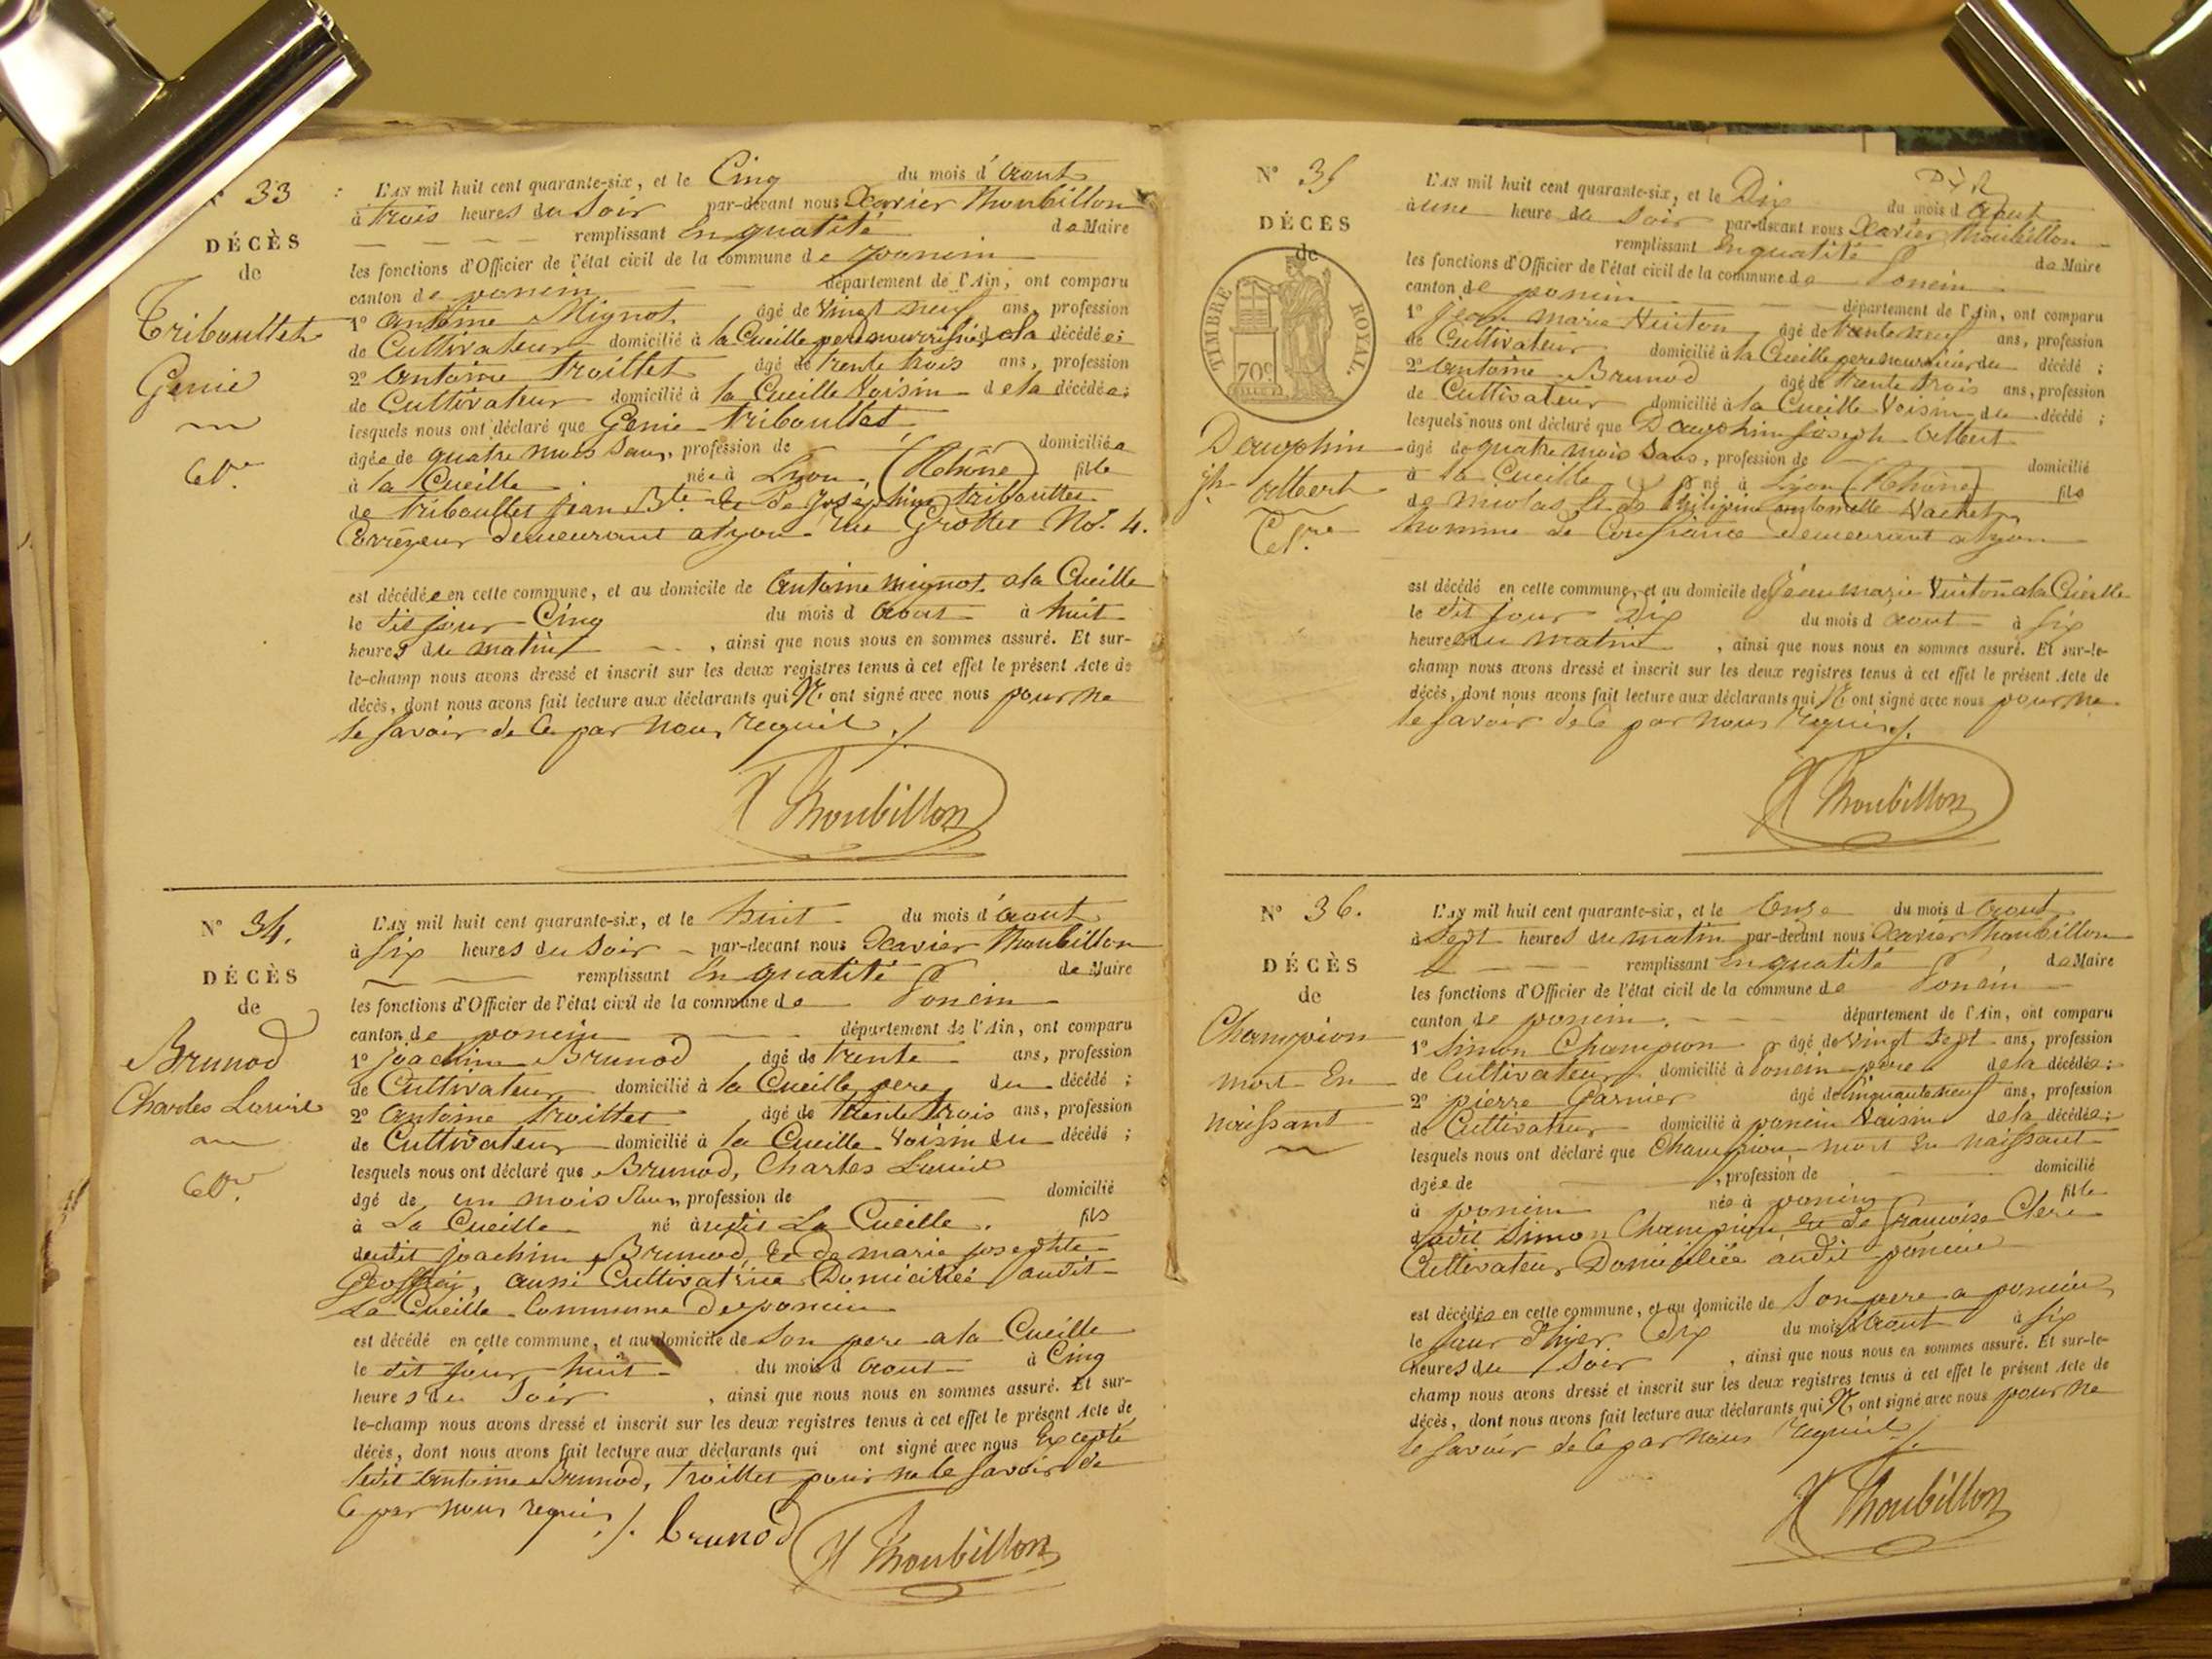 N° 33
DÉCÈS
de
Triboullet
Genie
Cel.re
L'AN mil huit cent quarante-six, et le Cinq du mois d'Aout
à trois heures du Soir par-devant nous Xavier Thoubillon
remplissant En qualité de Maire
les fonctions d'Officier de l'état civil de la commune de poncin
canton de poncin département de l'Ain, ont comparu
1° antoine Mignot âgé de Vingt neuf ans, profession
de Cultivateur domicilié à la Cueille pere nourrissier de la décédée;
2° antoine Troillet âgé de trente trois ans, profession
de Cultivateur domicilié à la Cueille Voisin de la décédée;
lesquels nous ont déclaré que Genie triboullet
âgée de quatre mois Sans, profession de domiciliée
à la Cueille née à Lyon (Rhône) fille
de triboullet Jean Bte. et de Joséphine triboullet
demeurant a Lyon rue Grottes No. 4.
est décédée en cette commune, et au domicile de antoine mignot a la Cueille
le dit jour Cinq du mois d Aout à huit
heures du matin, ainsi que nous nous en sommes assuré. Et sur-
le-champ nous avons dressé et inscrit sur les deux registres tenus à cet effet le présent Acte de
décès, dont nous avons fait lecture aux déclarants qui N'ont signé avec nous pour ne
le savoir de ce par nous requis ./.
X Thoubillon
N° 34.
DÉCÈS
de
Brunod
Charles
Cel.r
L'AN mil huit cent quarante-six, et le huit du mois d'Aout
à six heures du Soir par-devant nous Xavier Thoubillon
remplissant En qualité de Maire
les fonctions d'Officier de l'état civil de la commune de Poncin
canton de poncin département de l'Ain, ont comparu
1° joachim Brunod âgé de trente ans, profession
de Cultivateur domicilié à la Cueille pere du décédé;
2° antoine troillet âgé de trente trois ans, profession
de Cultivateur domicilié à la Cueille Voisin du décédé;
lesquels nous ont déclaré que Brunod, Charles
âgé de un mois Sans, profession de domicilié
à La Cueille né audit La Cueille. fils
dudit joachim Brunod, et de marie josephte
Geoffray, aussi Cultivatrice Domiciliée audit
La Cueille Commune de poncin
est décédé en cette commune, et au domicile de son pere a la Cueille
le dit jour huit du mois d Aout à Cinq
heures du Soir, ainsi que nous nous en sommes assuré. Et sur-
le-champ nous avons dressé et inscrit sur les deux registres tenus à cet effet le présent Acte de
décès, dont nous avons fait lecture aux déclarants qui ont signé avec nous Excepté
ledit antoine Brunod, Troillet pour ne le savoir de
ce par nous requis ./. brunod X Thoubillon
N° 35
DÉCÈS
de
TIMBRE ROYAL.
70c
Dauphin
jh. albert
Cel.re
L'AN mil huit cent quarante-six, et le Dix du mois d Aout
à une heure du Soir par-devant nous Xavier Thoubillon
remplissant En qualité de Maire
les fonctions d'Officier de l'état civil de la commune de Poncin
canton de poncin département de l'Ain, ont comparu
1° jean marie Vuiton âgé de trente neuf ans, profession
de Cultivateur domicilié à la Cueille pere nourricier du décédé;
2° antoine Brunod âgé de trente trois ans, profession
de Cultivateur domicilié à la Cueille Voisin du décédé;
lesquels nous ont déclaré que Dauphin Joseph albert
âgé de quatre mois Sans, profession de domicilié
à la Cueille né à Lyon (Rhône) fils
de nicolas et de antoinette Vachet
homme de Confiance demeurant a Lyon
est décédé en cette commune, et au domicile de Jean marie Vuiton a la Cueille
le dit jour Dix du mois d aout à six
heures du matin, ainsi que nous nous en sommes assuré. Et sur-le-
champ nous avons dressé et inscrit sur les deux registres tenus à cet effet le présent Acte de
décès, dont nous avons fait lecture aux déclarants qui N'ont signé avec nous pour ne
le savoir de ce par nous requis ./.
X Thoubillon
N° 36.
DÉCÈS
de
Champion
mort En
naissant
L'AN mil huit cent quarante-six, et le Onze du mois d Aout
à Sept heures du matin par-devant nous Xavier Thoubillon
remplissant En qualité de Maire
les fonctions d'Officier de l'état civil de la commune de Poncin
canton de poncin. département de l'Ain, ont comparu
1° Simon Champion âgé de Vingt Sept ans, profession
de Cultivateur domicilié à Poncin pere de la décédée;
2° pierre Garnier âgé de Cinquante neuf ans, profession
de Cultivateur domicilié à poncin Voisin de la décédée;
lesquels nous ont déclaré que Champion mort En naissant
âgée de , profession de domicilié
à poncin née à poncin fille
dudit Simon Champion, et de françoise Clere
Cultivateur Domiciliée audit poncin
est décédée en cette commune, et au domicile de Son pere a poncin
le jour d'hier Dix du mois d'Aout à six
heures du Soir, ainsi que nous nous en sommes assuré. Et sur-le-
champ nous avons dressé et inscrit sur les deux registres tenus à cet effet le présent Acte de
décès, dont nous avons fait lecture aux déclarants qui N'ont signé avec nous pour ne
le savoir de ce par nous requis ./.
X Thoubillon